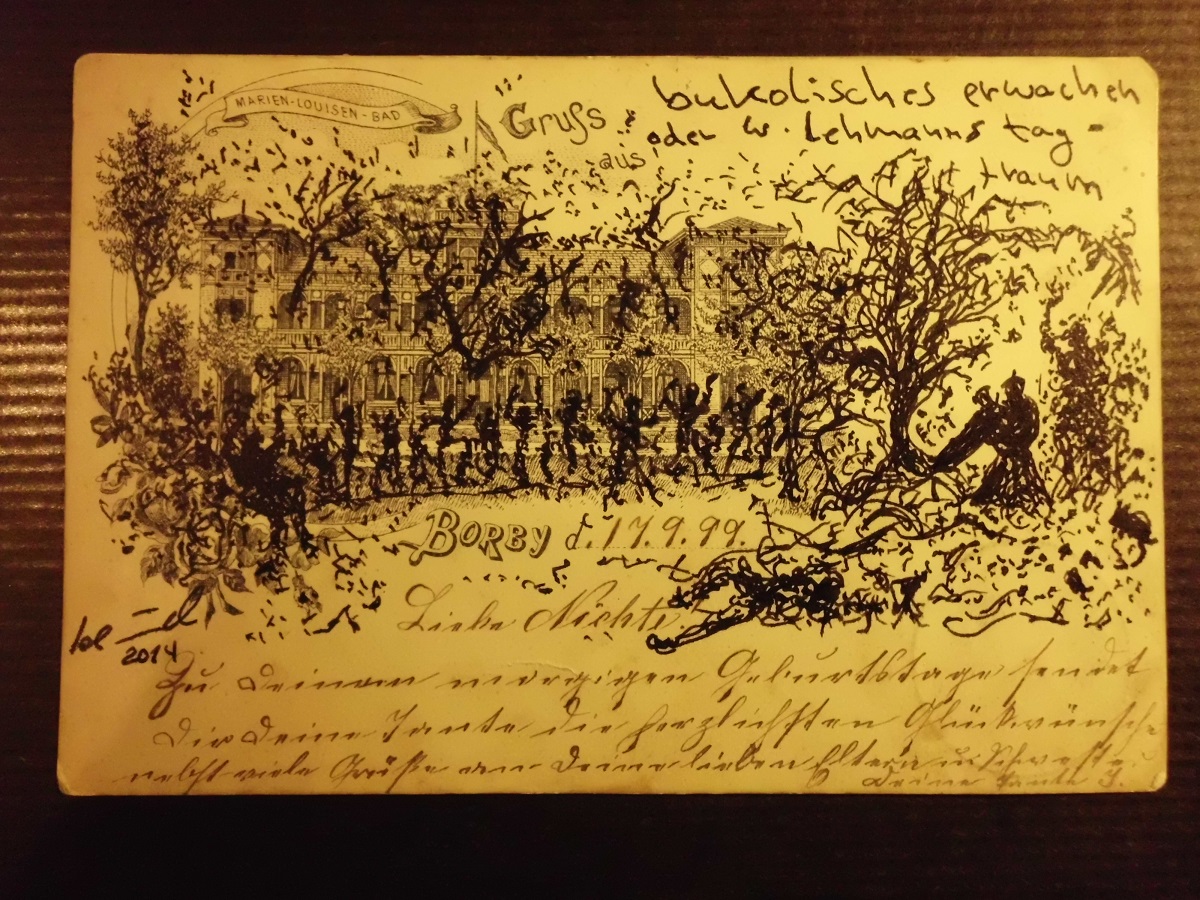 MARIEN-LOUISEN-BAD
Gruss
aus
bukolisches erwachen
oder w. Lehmanns tag-
traum
BORBY d. 17.9.99.
Liebe Nichte!
2014
Zu Deinem morgigen Geburtstage sendet
Dir Deine Tante die herzlichsten Glückwünsche
nebst viele Grüße an Deine lieben Eltern u. Schwester.
Deine Tante J.